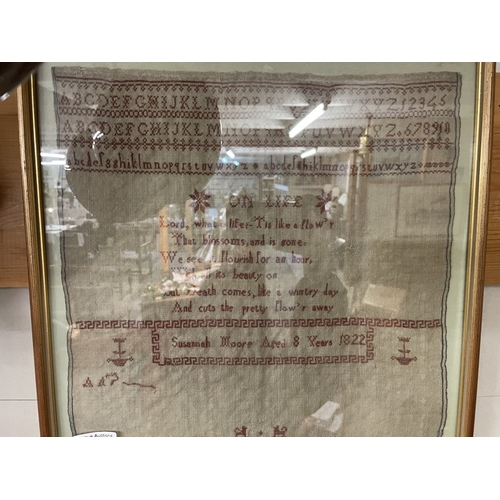 ABCDEFGHIJKLMNOPQ XYZ12345
ABCDEFGHIJKLMNOP TUVWXYZ.678910
abcdefghiklmnopqrstuvwxyz abcdefghiklmnopqrstuvwxyz
ON LIFE
Lord, what life 'Tis like a flow'r
That blossoms, and is gone:
We see flourish for an hour,
its beauty on
But death comes, like a wintry day
And cuts the pretty flow'r away
Susannah Moore Aged 8 Years 1822